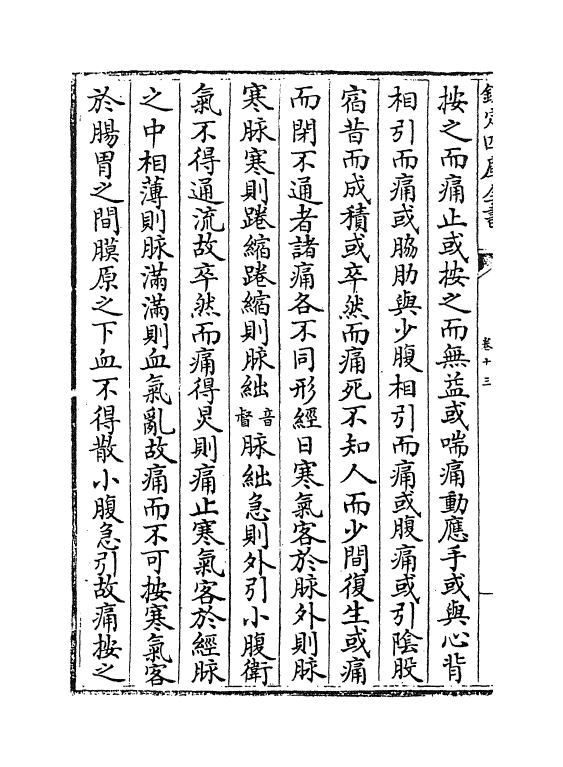 欽定四庫全書
卷十三
按之而痛止或按之而無益或喘痛動應手或與心背
相引而痛或脇肋與少腹相引而痛或腹痛或引陰股
宿昔而成積或卒然而痛死不知人而少間復生或痛
而閉不通者諸痛各不同形經曰寒氣客於脉外則脉
寒脉寒則踡縮踡縮則脉絀音督脉絀急則外引小腹衛
氣不得通流故卒然而痛得炅則痛止寒氣客於經脉
之中相薄則脉滿滿則血氣亂故痛而不可按寒氣客
於腸胃之間膜原之下血不得散小腹急引故痛按之